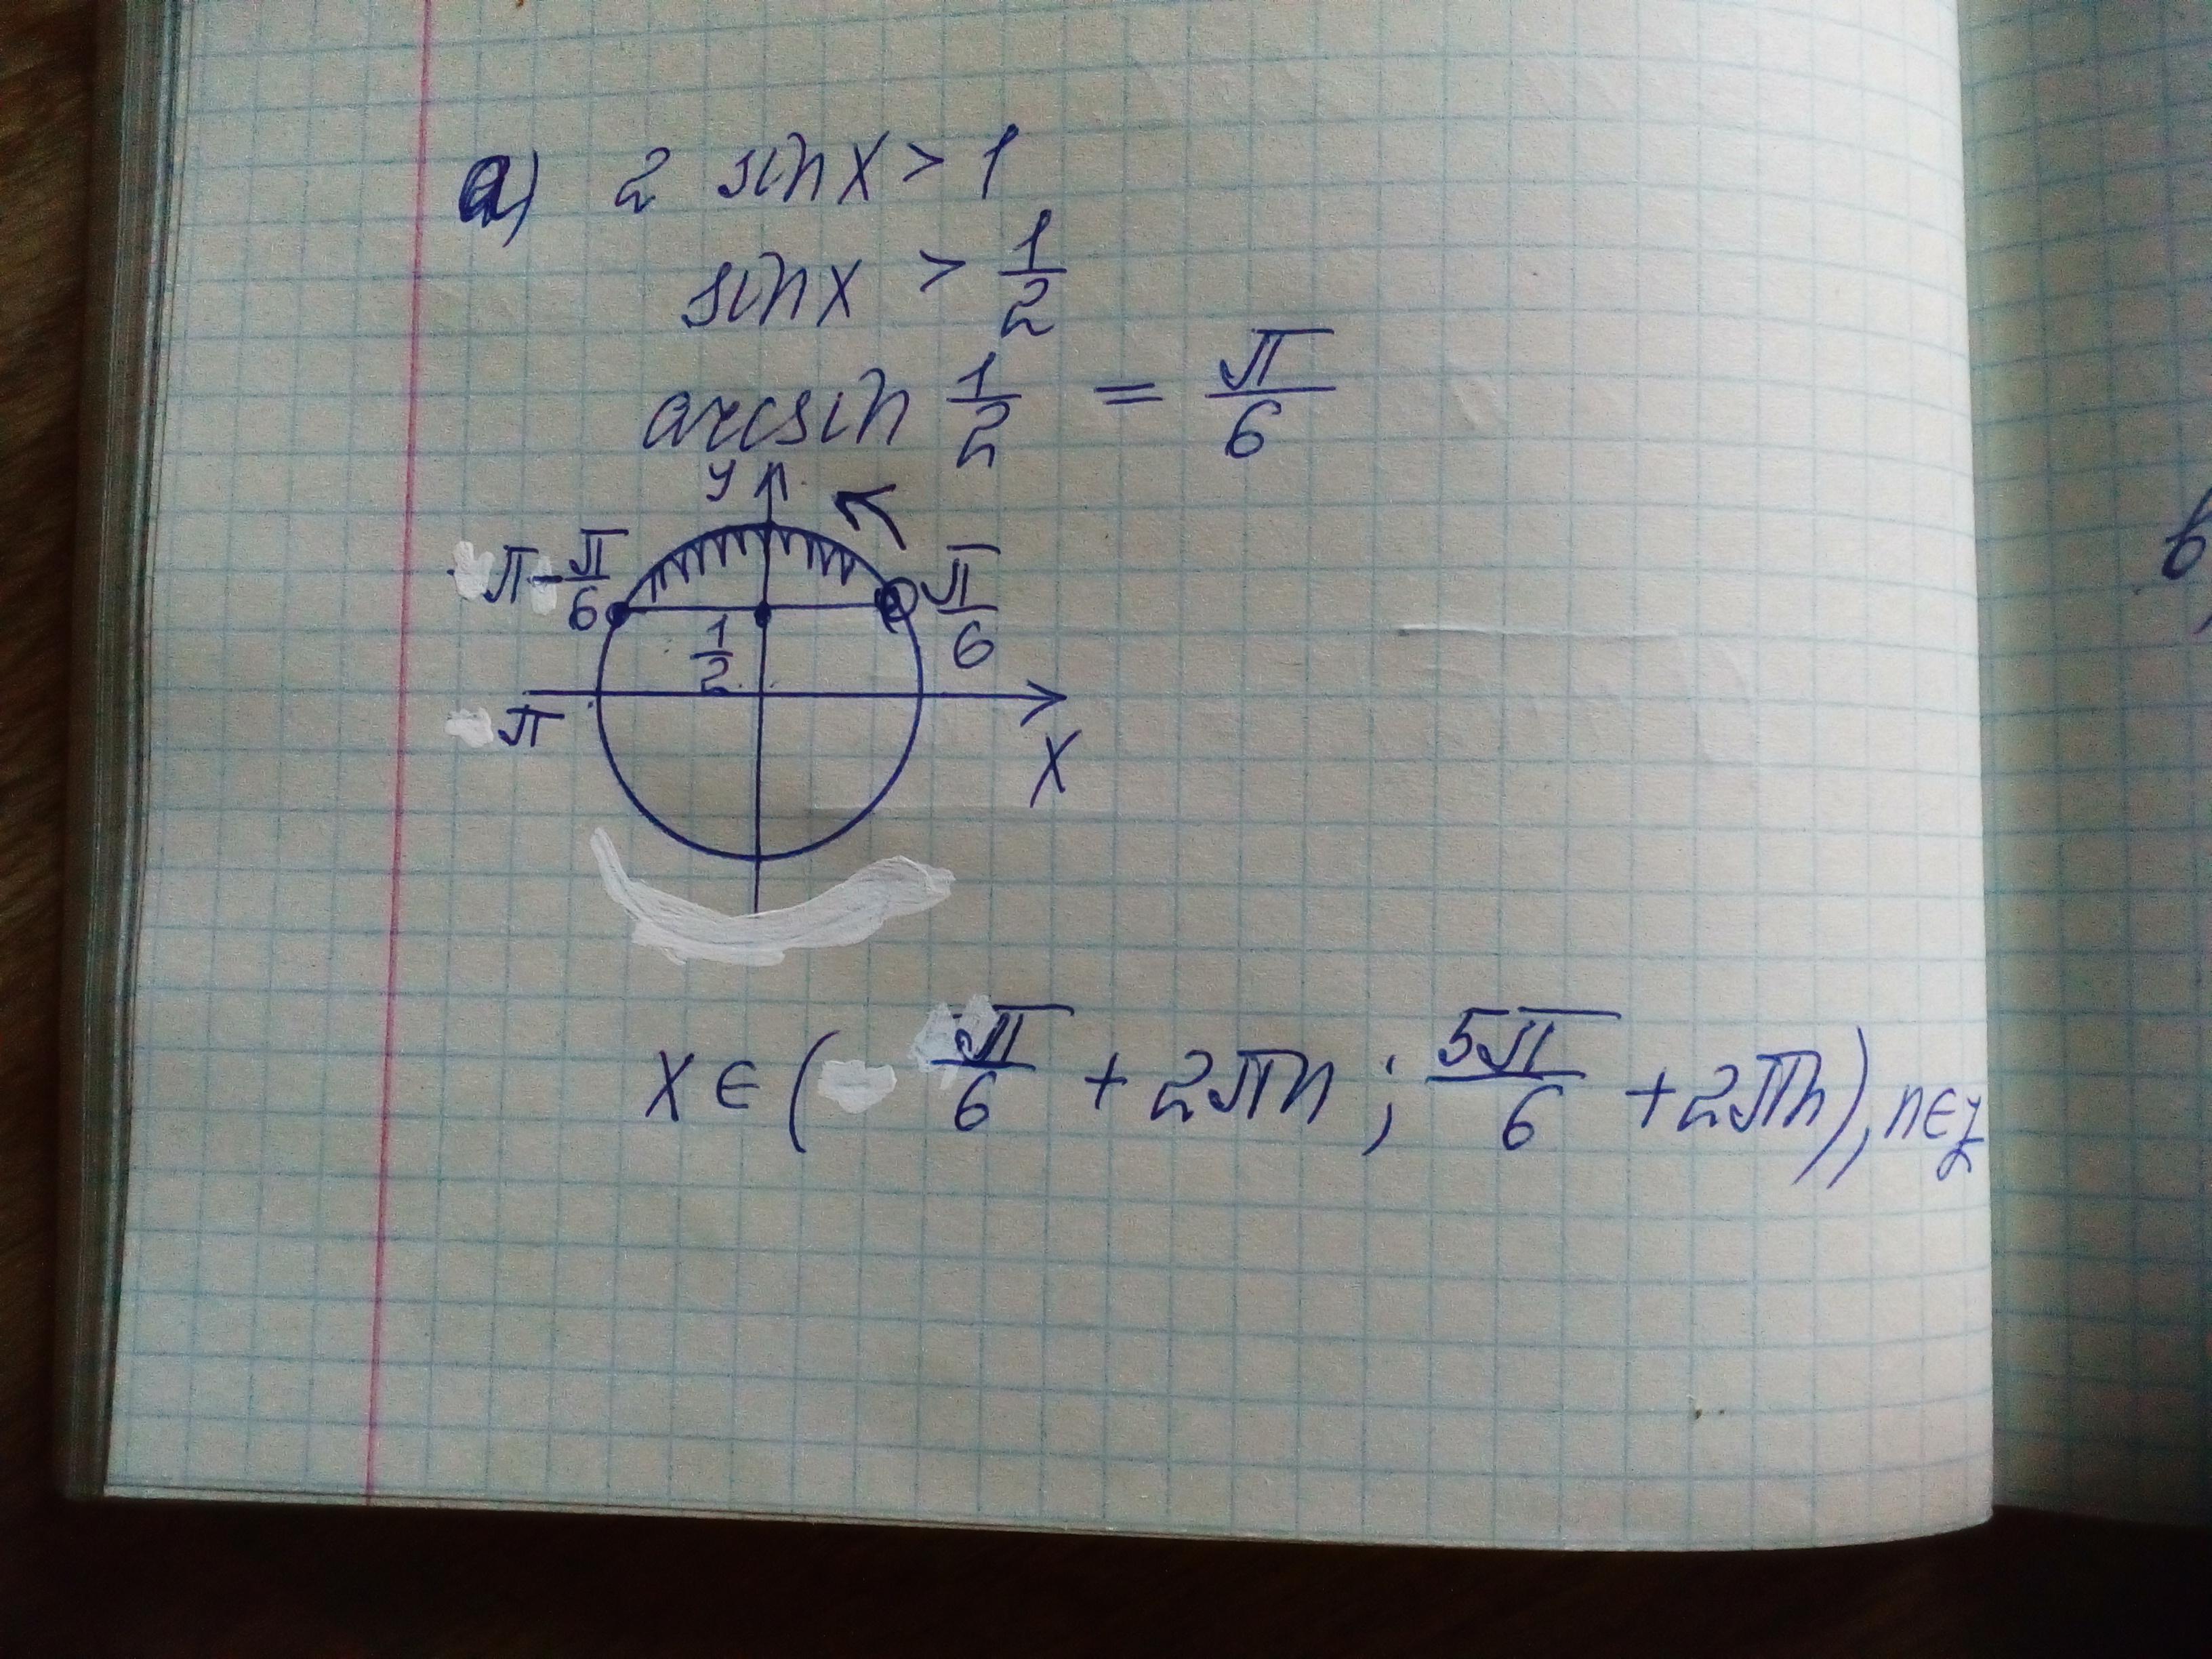 а) 2 sin x > 1
sin x > 1/2
arcsin 1/2 = π/6
y
π - π/6
π/6
1/2
π
x
x ∈ ( π/6 + 2πn ; 5π/6 + 2πn ), n ∈ Z
в